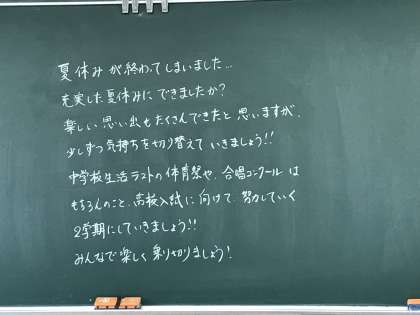 夏休みが終わってしまいました…
充実した夏休みにできましたか?
楽しい思い出もたくさんできたと思いますが、
少しずつ気持ちを切り替えていきましょう!!
中学校生活ラストの体育祭や、合唱コンクールは
もちろんのこと、高校入試に向けて、努力していく
2学期にしていきましょう!!
みんなで楽しく乗り切りましょう!